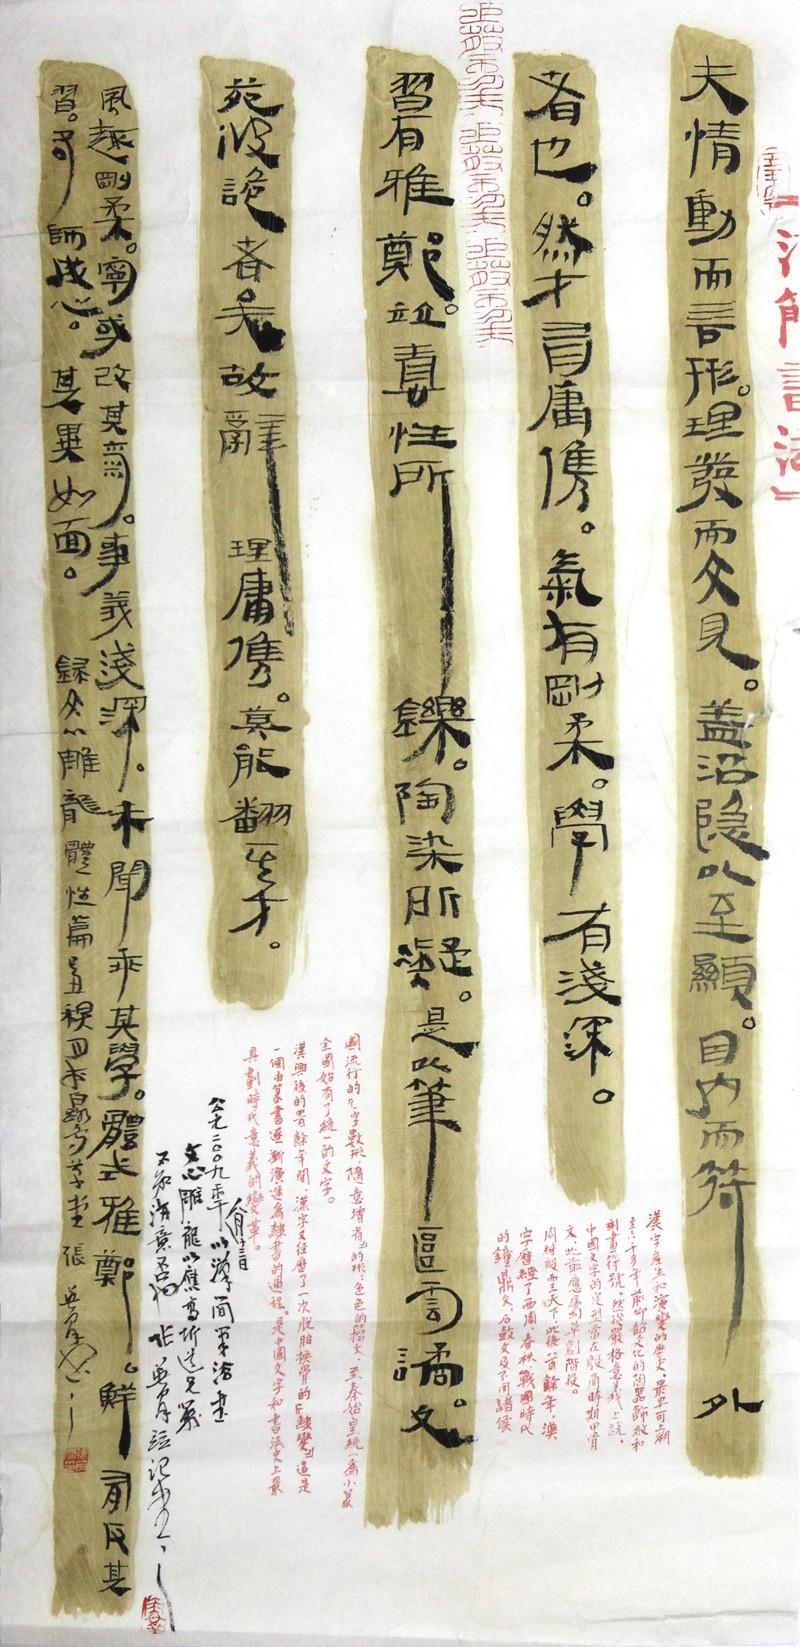 夫情動而言形。理發而文見。盖沿隱以至顯。因内而符外
者也。然才有庸儁。氣有剛柔。學有淺深。
習有雅鄭。竝真性所鑠。陶染所凝。是以筆區雲譎。文
苑波詭者矣。故辭理庸儁。莫能翻其才。
風趣剛柔。寧或改其氣。事義淺深。未聞乖其學。體式雅鄭。鮮有反其
習。各師成心。其異如面。
錄文心雕龍體性篇
漢字產生和演變的歷史，最早可上溯
至六千多年前仰韶文化的陶器飾紋和
刻畫符號，然從嚴格意義上說，
中國文字的定型當在殷商時期甲骨
文，此前應屬草創階段。
周紂殷而王天下，此後八百餘年，漢
字歷經了西周、春秋、戰國時代
的鐘鼎文、石鼓文及不同諸侯
國流行的文字數形，隨意增省的形形色色的籀文，至秦始皇統一為小篆
全國始有了統一的文字。
漢興後的四百餘年間，漢字又經歷了一次脫胎換骨的「隸變」，這是
一個由篆書逐漸演進為隸書的過程，是中國文字和書法史上最
具劃時代意義的變革。
公元二〇〇九年
以漢簡筆法書
文心雕龍以應